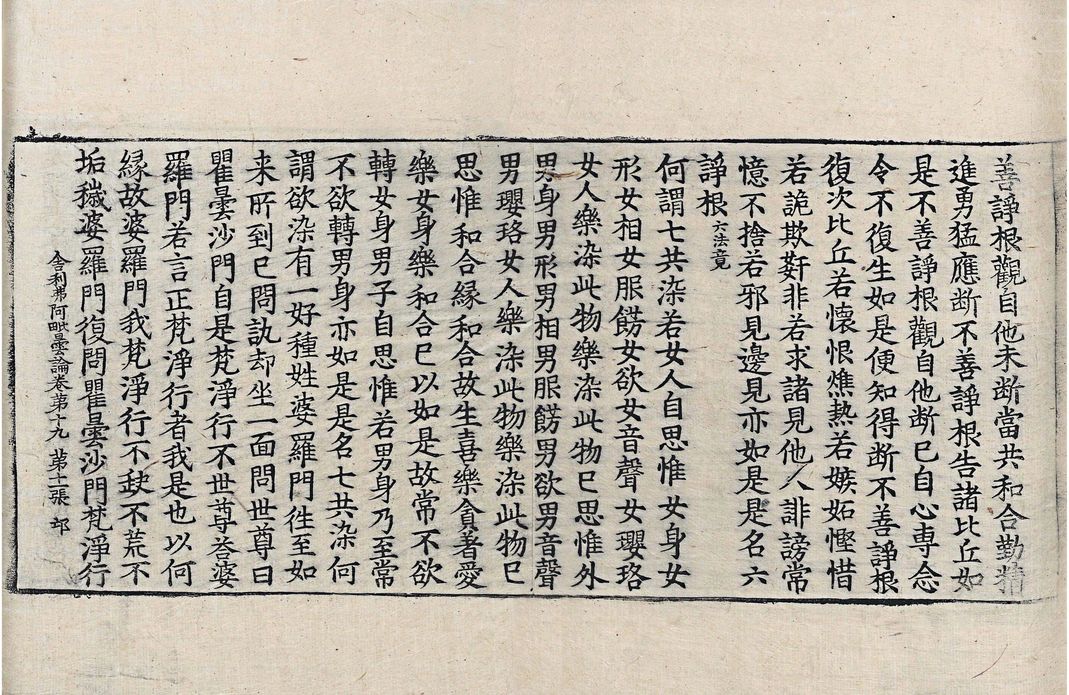 善諍根觀自他未断當共和合勤精
進勇猛應断不善諍根告諸比丘如
是不善諍根觀自他断已自心専念
令不復生如是便知得断不善諍根
復次比丘若懷恨燋熱若嫉妬慳惜
若詭欺姧非若求諸見他人誹謗常
憶不捨若邪見邊見亦如是是名六
諍根六法竟
何謂七共染若女人自思惟女身女
形女相女服餝女欲女音聲女瓔珞
女人樂染此物樂染此物已思惟外
男身男形男相男服餝男欲男音聲
男瓔珞女人樂染此物樂染此物已
思惟和合縁和合故生喜樂貪著愛
樂女身樂和合已以如是故常不欲
轉女身男子自思惟若男身乃至常
不欲轉男身亦如是是名七共染何
謂欲染有一好種姓婆羅門徃至如
来所到已問訊却坐一面問世尊曰
瞿曇沙門自是梵淨行不世尊荅婆
羅門若言正梵淨行者我是也以何
縁故婆羅門我梵淨行不缺不荒不
垢穢婆羅門復問瞿曇沙門梵淨行
舍利弗阿毗曇論卷第十九 第十張 㔷